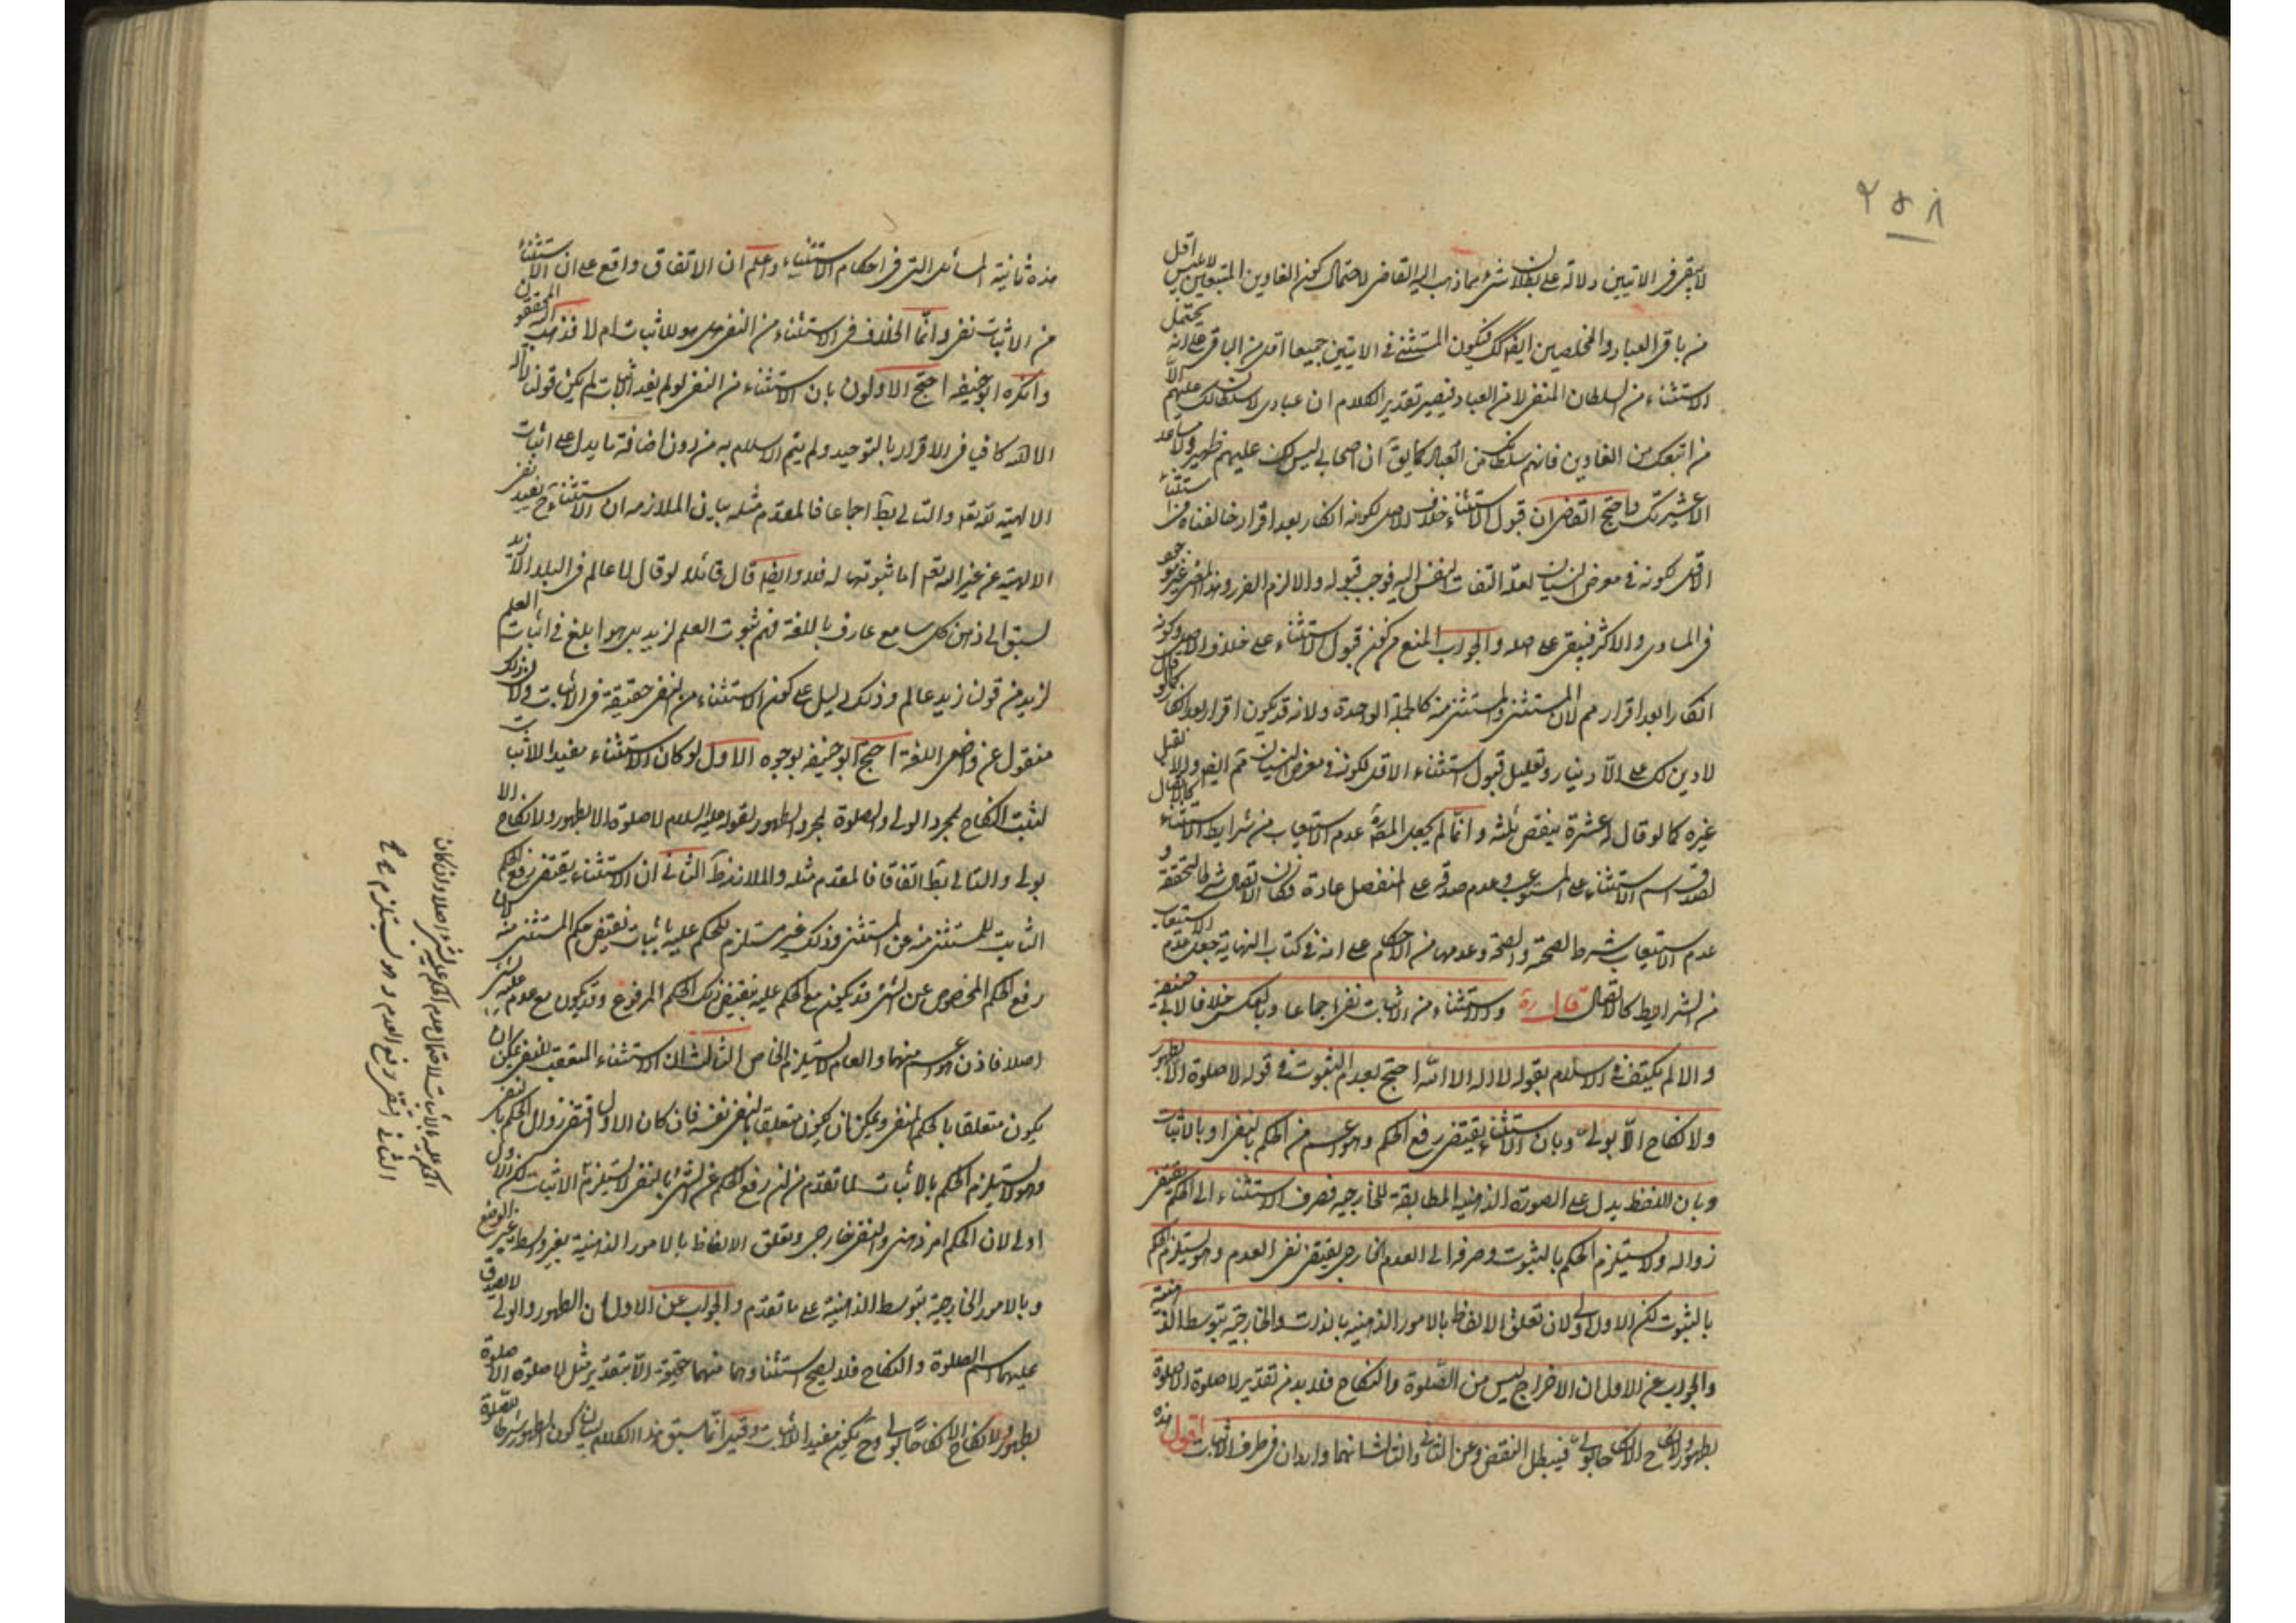 ۲۵۸
لا يبقى في الايتين دلالة على بطلان شئ مما ذهب اليه القاضي لاحتمال كون الغاوين المتبعين لابليس اقل
من باقي العباد والمخلصين ايضا كك فيكون المستثنى في الايتين جميعا اقل من الباقي على انه يحتمل
الاستثناء من السلطان المنفي لا من العباد فيصير تقدير الكلام ان عبادي لا سلطان لك عليهم الا
من اتبعك من الغاوين فانهم سلطانك من العباد كما يق ان اصحابي ليس لك عليهم ظهير ولا مساعد
الا عشيرتك واحتج القاضي ان قبول الاستثناء خلاف الاصل لكونه انكار بعد اقرار خالفناه في استثناء
الاقل لكونه في معرض النسيان لعلة التفات النفس اليه فوجب قبوله والا لزم الضرر وهذا المعنى غير موجود
في المساوي والاكثر فيبقى على اصله والجواب المنع من كون قبول الاستثناء على خلاف الاصل وكونه
انكارا بعد اقرار مم لان المستثنى والمستثنى منه كالجملة الواحدة ولانه قد يكون اقرارا بعد انكار كما لو قال
لا دين لك على الا دينار وتعليل قبول استثناء الاقل لكونه في معرض النسيان مم ايضا والا لقبل
غيره كما لو قال له عشرة ينقص ثلثه وانما لم يجعل المص عدم الاستيعاب من شرايط الاستثناء كالاتصال
لصدق اسم الاستثناء على المستوعب وعدم صدقه على المنفصل عادة فكان الاتصال شرطا لتحققه و
عدم الاستيعاب شرط الصحة والصحة وعدمها من الاحكام على انه في كتاب النهاية جعل عدم الاستيعاب
من الشرايط كالاتصال قال ره والاستثناء من الاثبات نفي اجماعا وبالعكس خلافا لابي حنيفة
والا لم يكتف في الاسلام بقوله لا اله الا الله احتج بعدم الثبوت في قوله لا صلوة الا بطهور
ولا نكاح الا بولي وبان الاستثناء يقتضي رفع الحكم وهو اعم من الحكم بالنفي او بالاثبات
وبان اللفظ يدل على الصورة الذهنية المطابقة للخارجية فصرف الاستثناء الى الحكم يقتضي
زواله ولا يستلزم الحكم بالثبوت وصرفه الى العدم الخارجي يقتضي نفي العدم وهو يستلزم الحكم
بالثبوت لكن الاول اولى لان تعلق الالفاظ بالامور الذهنية بالذات والخارجية بتوسط الذهنية
والجواب عن الاول ان الاخراج ليس من الصلوة والنكاح فلا بد من تقدير لا صلوة الا صلوة
بطهور ولا نكاح الا نكاحا بولي فيبطل النقض وعن الثاني والثالث انهما واردان في طرف الاثبات اقول هذه
هذه ثانية المسائل التي في احكام الاستثناء واعلم ان الاتفاق واقع على ان الاستثناء
من الاثبات نفي وانما الخلاف في الاستثناء من النفي هل هو للاثبات ام لا فذهب اليه المحققون
وانكره ابو حنيفه احتج الاولون بان الاستثناء من النفي لو لم يفد الاثبات لم يكن قولنا لا اله
الا الله كافيا في الاقرار بالتوحيد ولم يتم الاسلام به من دون اضافة ما يدل على اثبات
الالهية لله تع والتالي بط اجماعا فالمقدم مثله بيان الملازمه ان الاستثناء ح يفيد نفي
الالهية عن غير الله تع اما ثبوتها له فلا وايضا قال قائلا لو قال لا عالم في البلد الا زيد
لسبق الى ذهن كل سامع عارف باللغة فهم ثبوت العلم لزيد بل هو ابلغ في اثبات العلم
لزيد من قولنا زيد عالم وذلك دليل على كون الاستثناء من النفي حقيقة في الاثبات ولان ذلك
منقول عن واضعي اللغة احتج ابو حنيفه بوجوه الاول لو كان الاستثناء مفيدا لاثبات
لثبت النكاح بمجرد الولي والصلوة بمجرد الطهور لقوله عليه السلام لا صلوة الا بطهور ولا نكاح الا
بولي والتالي بط اتفاقا فالمقدم مثله والملازمة ظ الثاني ان الاستثناء يقتضي رفع الحكم
الثابت للمستثنى منه عن المستثنى وذلك غير مستلزم للحكم عليه باثبات نقيض حكم المستثنى منه لان
رفع الحكم المخصوص عن الشئ قد يكون مع الحكم عليه بنقيض ذلك الحكم المرفوع وقد يكون مع عدم عليه بشئ
اصلا فاذن هو اعم منهما والعام لا يستلزم الخاص الثالث ان الاستثناء المتعقب للنفي يمكن ان
يكون متعلقا بالحكم بالنفي ويمكن ان يكون متعلقا بالنفي نفسه فان كان الاول اقتضى زوال الحكم بالنفي
وهو لا يستلزم الحكم بالاثبات لما تقدم من ان رفع الحكم عن الشئ بالنفي لا يستلزم الاثبات لكن الاول
اولى لان الحكم امر ذهني والنفي خارجي وتعلق الالفاظ بالامور الذهنية بغير وسط غير الوضع
وبالامور الخارجية بتوسط الذهنية على ما تقدم والجواب عن الاول ان الطهور والولي لا يصدق
عليهما اسم الصلوة والنكاح فلا يصح استثناوهما منهما حقيقة الا بتقدير مثل لا صلوة الا صلوة
بطهور ولا نكاح الا نكاحا بولي وح يكون مفيد الاثبات وقيل انما سيق هذا الكلام لبيان كون الطهور شرطا للصلوة
الحكم عليه بالاثبات لاحتمال عدم الحكم عليه بشئ اصلا وان كان
الثاني اقتضى رفع العدم وهو يستلزم